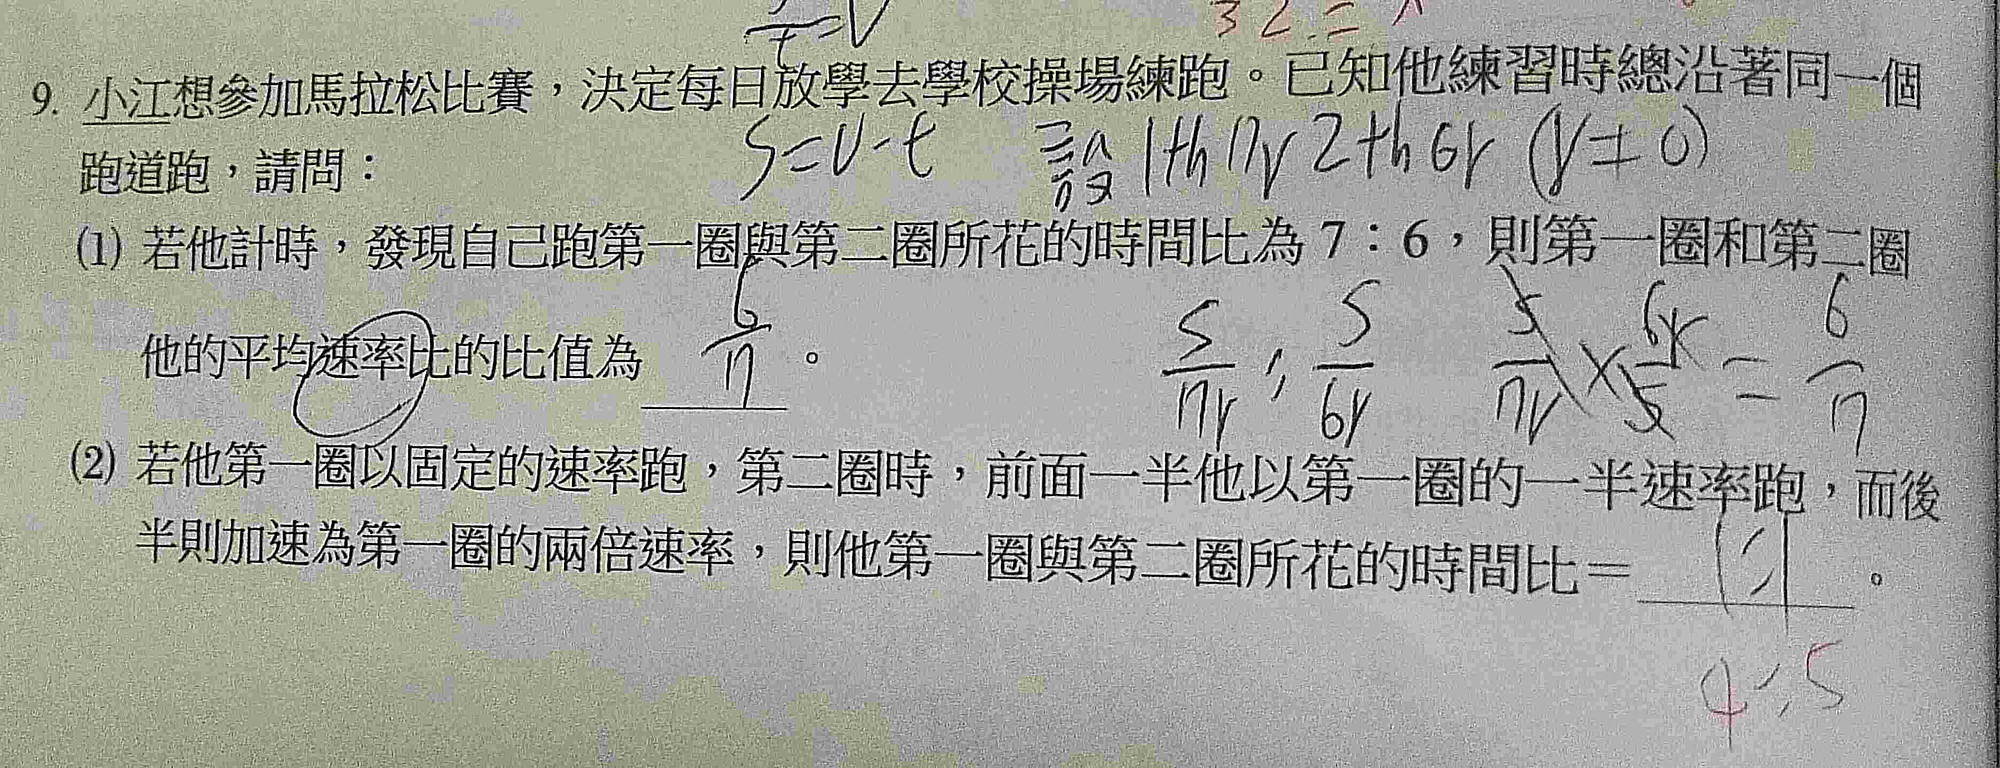 9. 小江想參加馬拉松比賽，決定每日放學去學校操場練跑。已知他練習時總沿著同一個
跑道跑，請問：
S=V·t 設 1th 7r 2th 6r (r≠0)
(1) 若他計時，發現自己跑第一圈與第二圈所花的時間比為 7：6，則第一圈和第二圈
他的平均速率比的比值為 6/7 。
S/7r : S/6r S/7r × 6r/S = 6/7
(2) 若他第一圈以固定的速率跑，第二圈時，前面一半他以第一圈的一半速率跑，而後
半則加速為第一圈的兩倍速率，則他第一圈與第二圈所花的時間比＝ 1:1 。
4:5